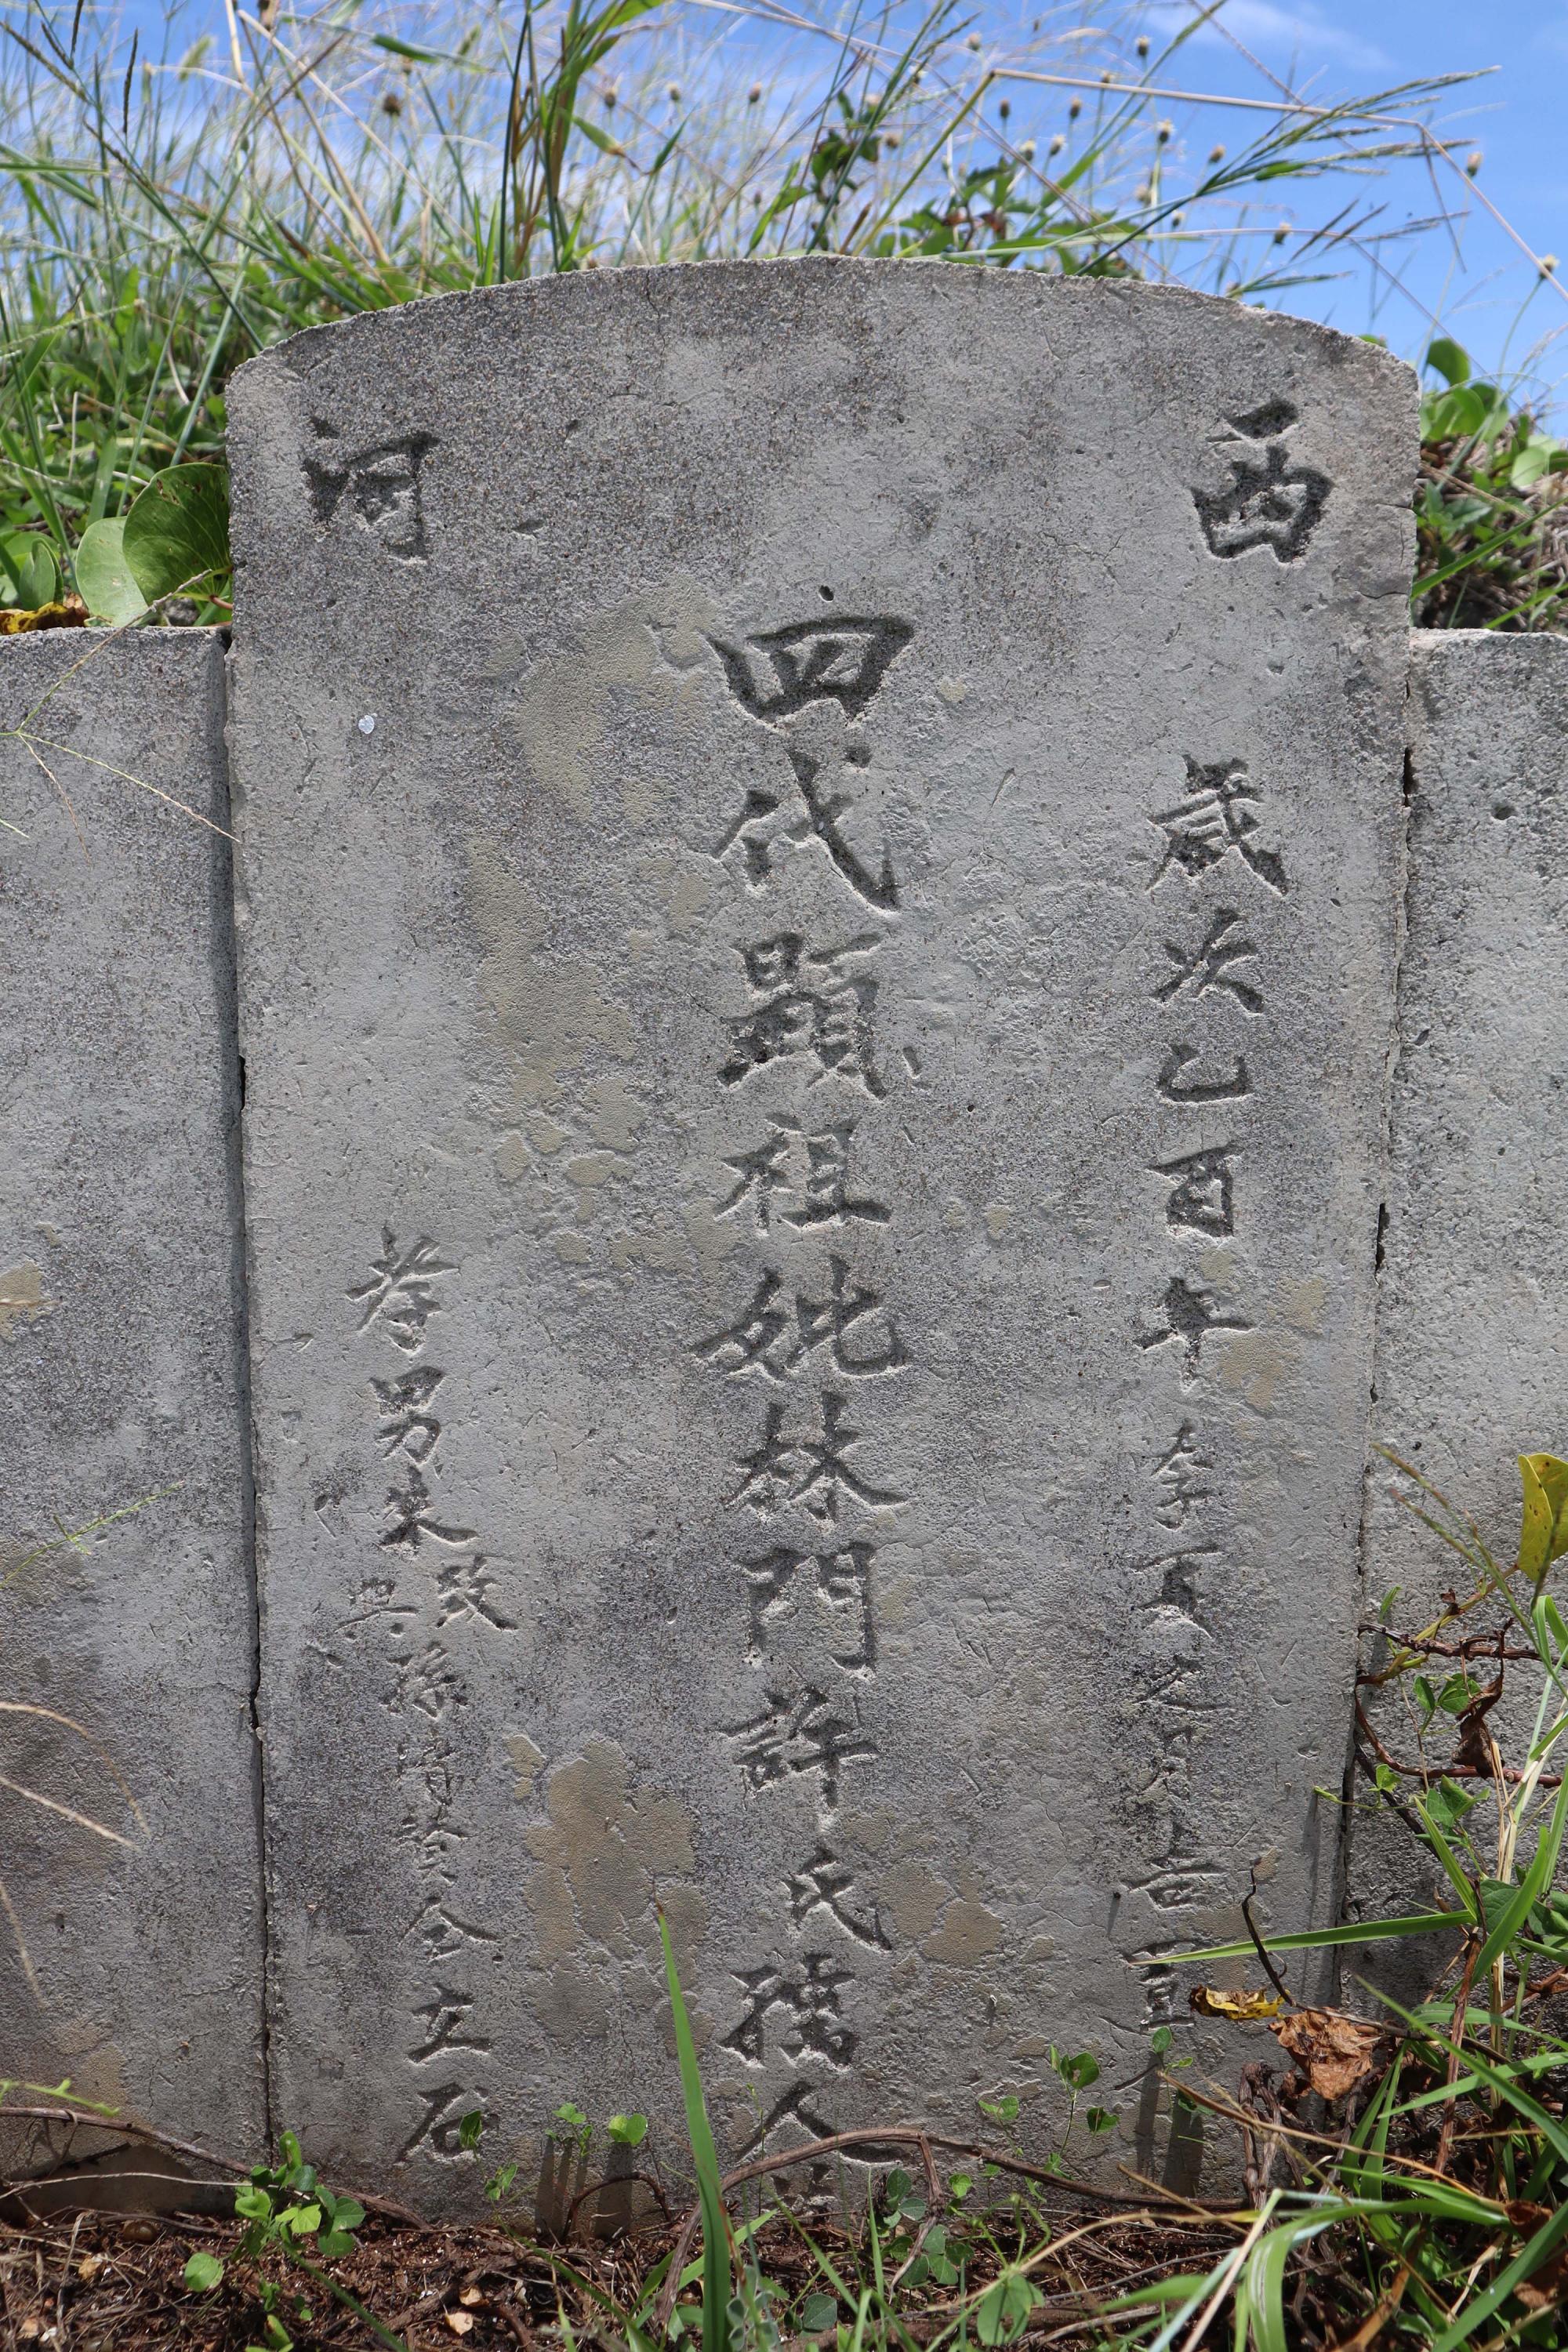 西河
歲次乙酉年季夏令月吉置
四代顯祖妣林門許氏孺人
孝男来致興孫 全立石